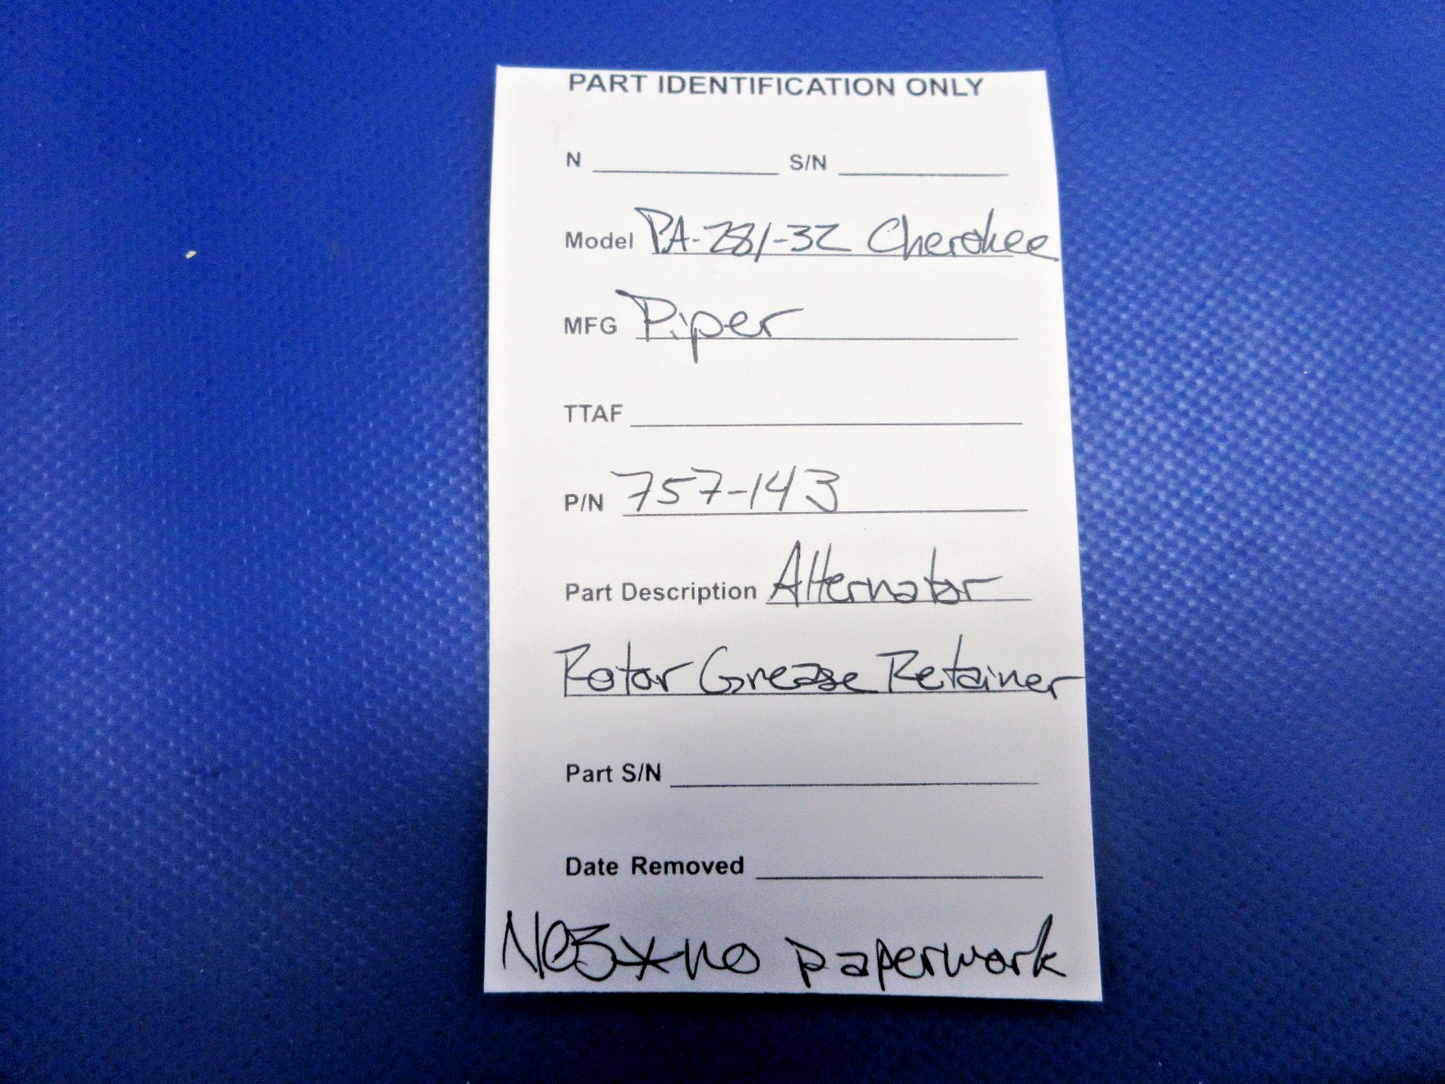 PART IDENTIFICATION ONLY
N S/N
Model PA-28/-32 Cherokee
MFG Piper
TTAF
P/N 757-143
Part Description Alternator
Rotor Grease Retainer
Part S/N
Date Removed
NOS*no paperwork